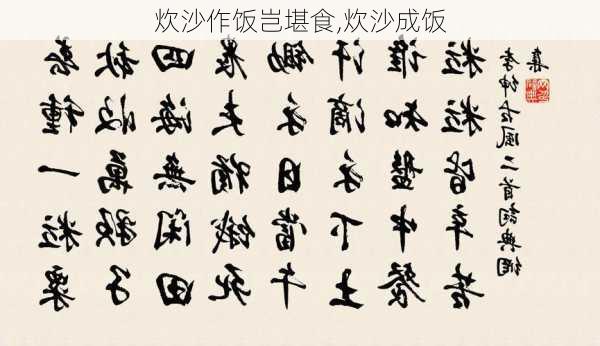 炊沙作饭岂堪食,炊沙成饭
春種一粒粟
秋收萬顆子
四海無閑田
農夫猶餓死
鋤禾日當午
汗滴禾下土
誰知盤中餐
粒粒皆辛苦
李紳古風二首詞典網
集